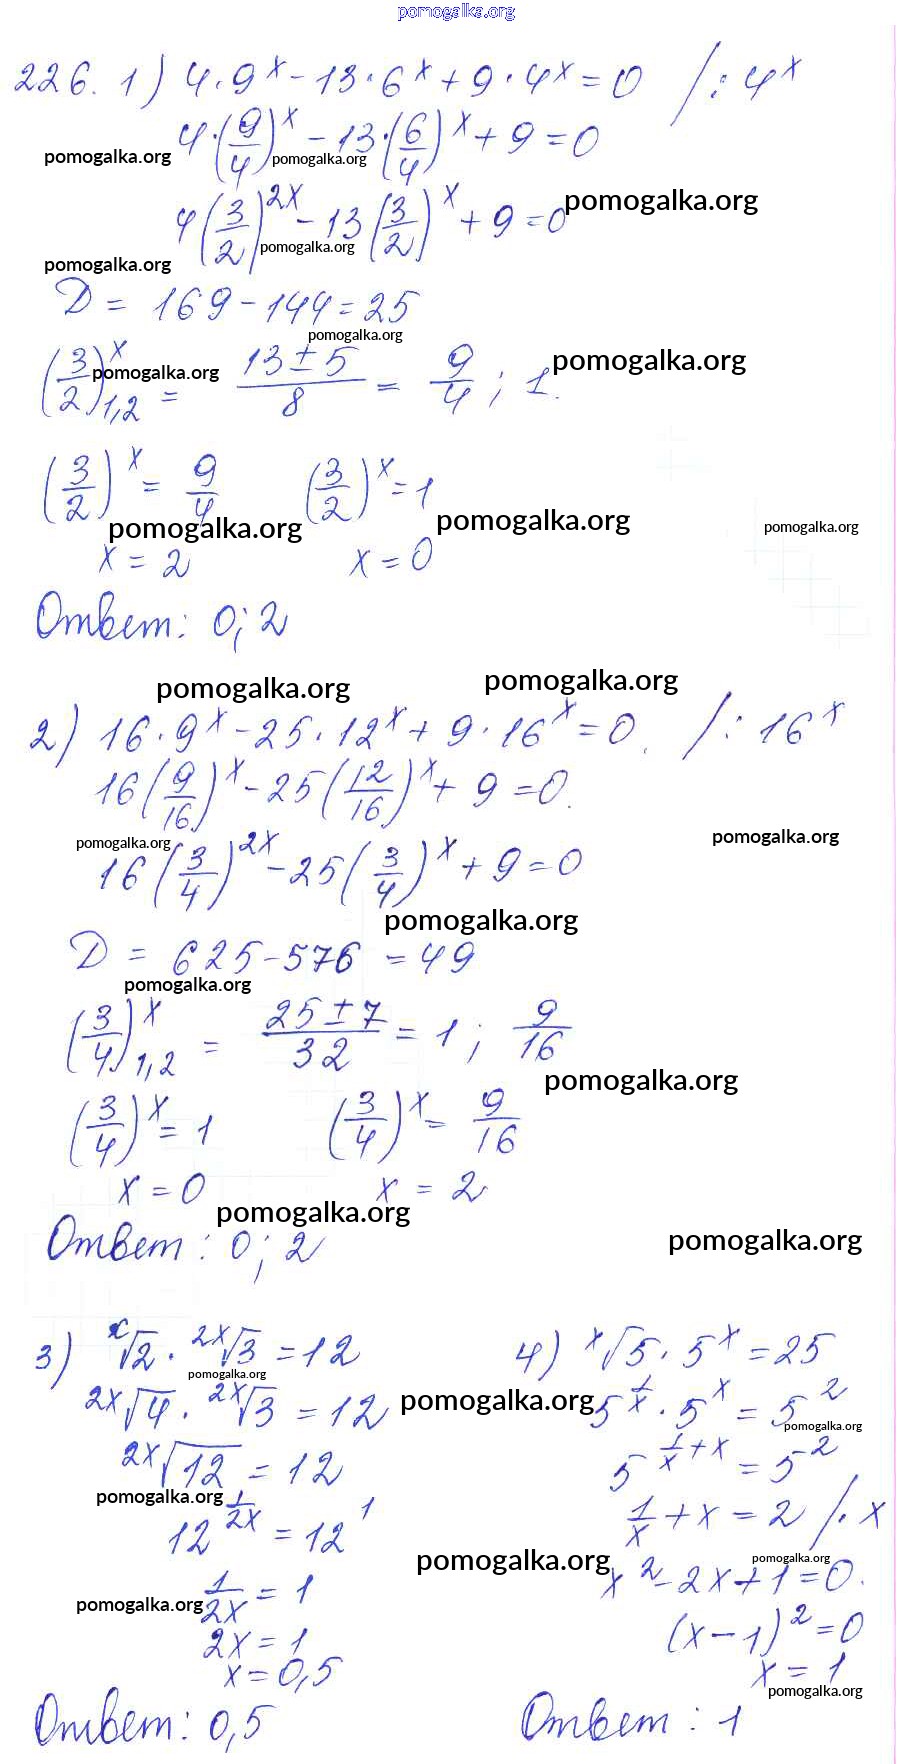 pomogalka.org
226. 1) 4·9^x − 13·6^x + 9·4^x = 0 /: 4^x
4·(9/4)^x − 13·(6/4)^x + 9 = 0
pomogalka.org pomogalka.org
4(3/2)^2x − 13(3/2)^x + 9 = 0 pomogalka.org
pomogalka.org pomogalka.org
D = 169 − 144 = 25
pomogalka.org
(3/2)^x 1,2 = (13 ± 5)/8 = 9/4; 1.
pomogalka.org pomogalka.org
(3/2)^x = 9/4 (3/2)^x = 1
pomogalka.org pomogalka.org pomogalka.org
x = 2 x = 0
Ответ: 0; 2
pomogalka.org pomogalka.org
2) 16·9^x − 25·12^x + 9·16^x = 0. /: 16^x
16(9/16)^x − 25(12/16)^x + 9 = 0.
pomogalka.org pomogalka.org
16(3/4)^2x − 25(3/4)^x + 9 = 0
pomogalka.org
D = 625 − 576 = 49
pomogalka.org
(3/4)^x 1,2 = (25 ± 7)/32 = 1; 9/16
pomogalka.org
(3/4)^x = 1 (3/4)^x = 9/16
x = 0 x = 2
pomogalka.org
Ответ: 0; 2 pomogalka.org
3) ^x√2 · ^2x√3 = 12
pomogalka.org
^2x√4 · ^2x√3 = 12
^2x√12 = 12
pomogalka.org
12^(1/2x) = 12^1
1/2x = 1
pomogalka.org
2x = 1
x = 0,5
Ответ: 0,5
4) ^x√5 · 5^x = 25
pomogalka.org
5^(1/x) · 5^x = 5^2
pomogalka.org
5^(1/x + x) = 5^2
1/x + x = 2 /· x
pomogalka.org pomogalka.org
x^2 − 2x + 1 = 0.
(x − 1)^2 = 0
x = 1
pomogalka.org
Ответ: 1